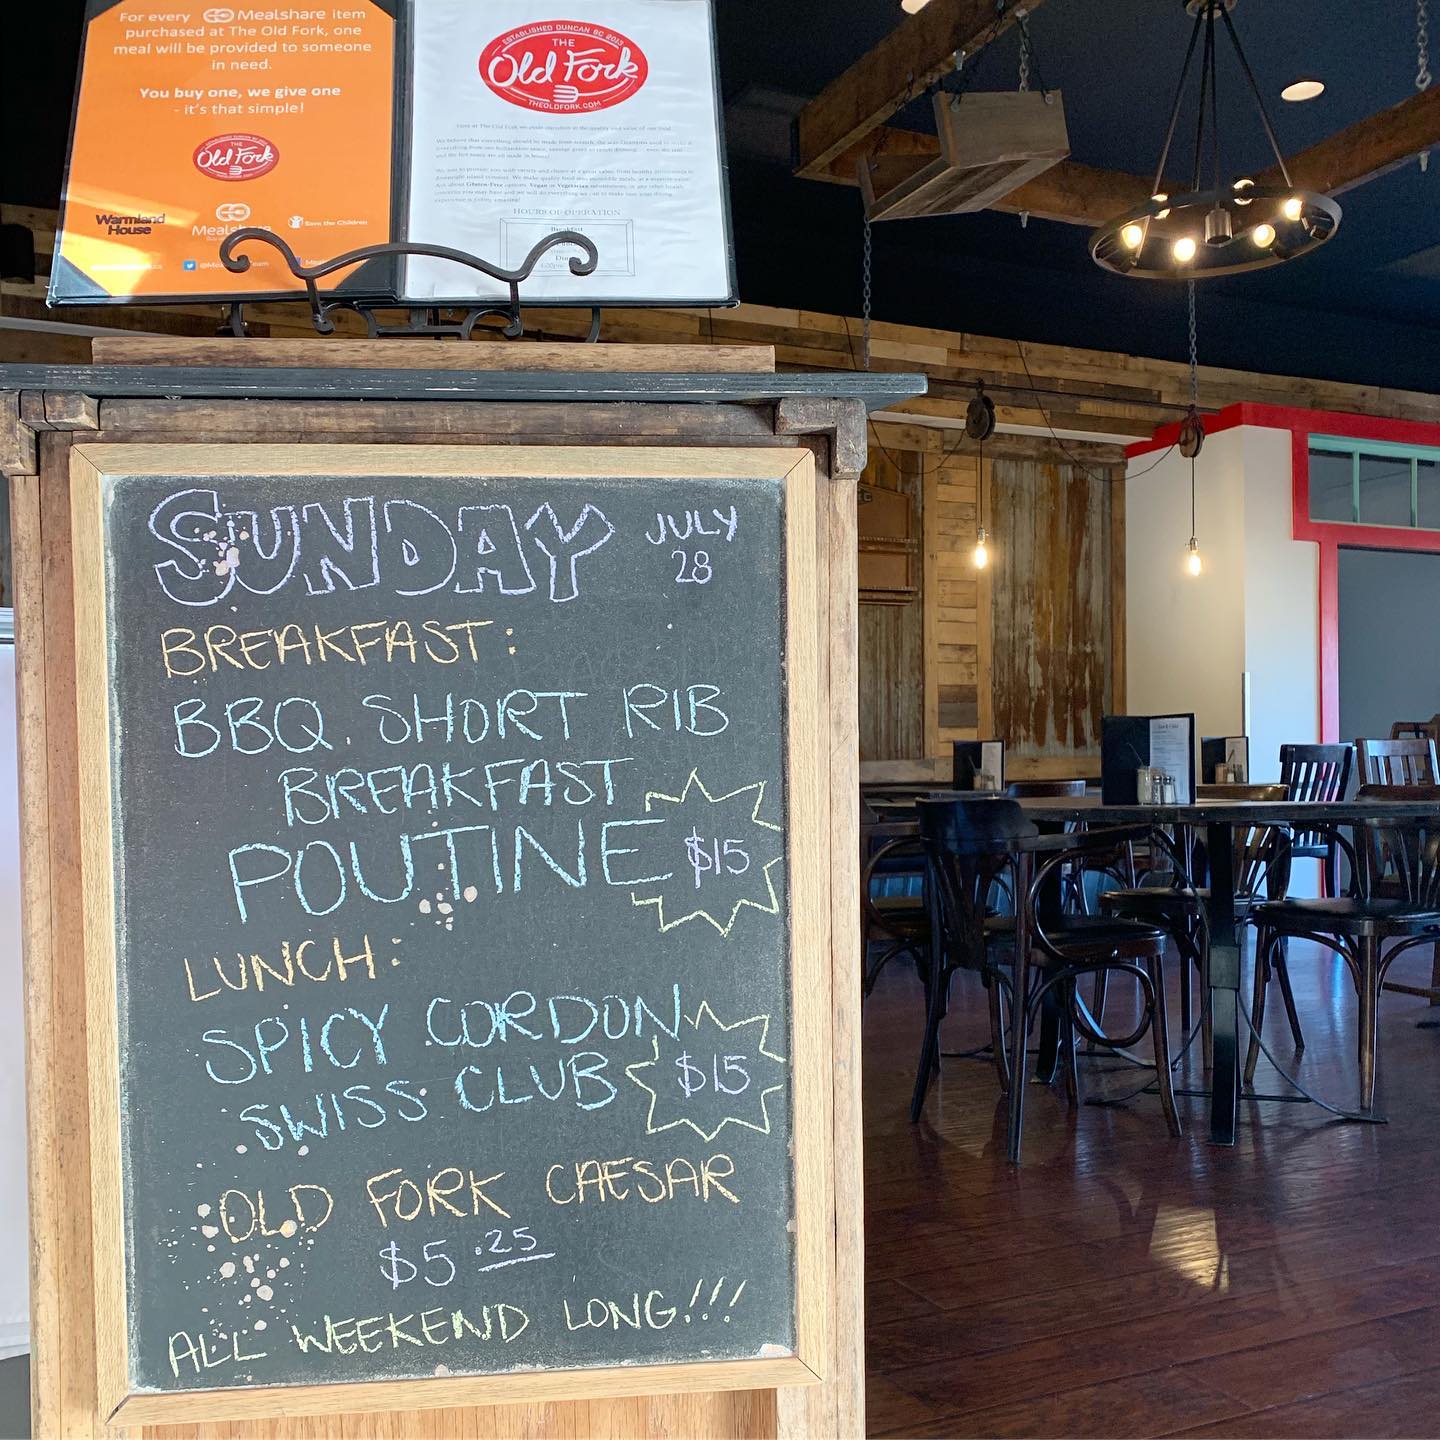 For every Mealshare item
purchased at The Old Fork, one
meal will be provided to someone
in need.
You buy one, we give one
- it's that simple!
ESTABLISHED DUNCAN BC 2013
THE
Old Fork
Warmland
House
Mealshare
Save the Children
ESTABLISHED DUNCAN BC 2013
THE
Old Fork
THEOLDFORK.COM
HOURS OF OPERATION
Breakfast
SUNDAY JULY
28
BREAKFAST:
BBQ SHORT RIB
BREAKFAST
POUTINE $15
LUNCH:
SPICY CORDON
SWISS CLUB $15
OLD FORK CAESAR
$5.25
ALL WEEKEND LONG!!!